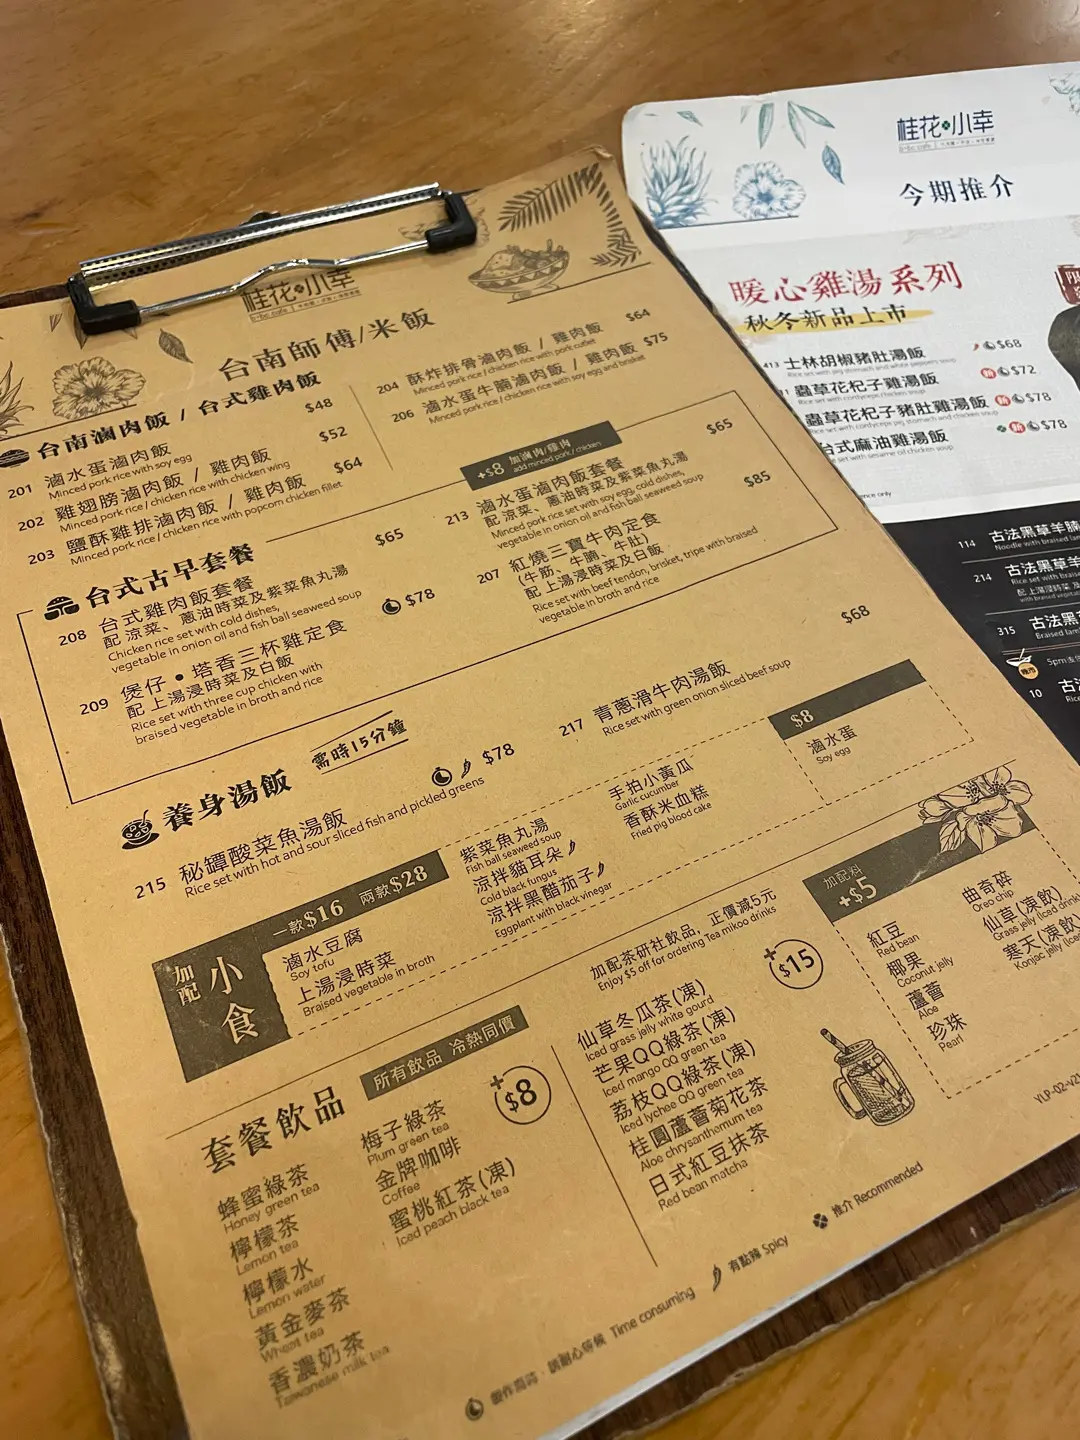 桂花小幸
台南師傅/米飯
台南滷肉飯 / 台式雞肉飯
201 滷水蛋滷肉飯 $48
Minced pork rice with soy egg
202 雞翅膀滷肉飯 / 雞肉飯 $52
Minced pork rice / chicken rice with chicken wing
203 鹽酥雞排滷肉飯 / 雞肉飯 $64
Minced pork rice / chicken rice with popcorn chicken fillet
204 酥炸排骨滷肉飯 / 雞肉飯 $64
Minced pork rice / chicken rice with pork cutlet
206 滷水蛋牛腩滷肉飯 / 雞肉飯 $75
Minced pork rice / chicken rice with soy egg and brisket
台式古早套餐
+$8 加滷肉/雞肉
add minced pork / chicken
208 台式雞肉飯套餐 $65
配 涼菜、蔥油時菜及紫菜魚丸湯
Chicken rice set with cold dishes,
vegetable in onion oil and fish ball seaweed soup
209 煲仔 • 塔香三杯雞定食 $78
配 上湯浸時菜及白飯
Rice set with three cup chicken with
braised vegetable in broth and rice
213 滷水蛋滷肉飯套餐 $65
配 涼菜、蔥油時菜及紫菜魚丸湯
Minced pork rice set with soy egg, cold dishes,
vegetable in onion oil and fish ball seaweed soup
207 紅燒三寶牛肉定食 $85
(牛筋、牛腩、牛肚)
配 上湯浸時菜及白飯
Rice set with beef tendon, brisket, tripe with braised
vegetable in broth and rice
養身湯飯 需時15分鐘
215 秘罈酸菜魚湯飯 $78
Rice set with hot and sour sliced fish and pickled greens
217 青蔥滑牛肉湯飯 $68
Rice set with green onion sliced beef soup
加配 小食
一款$16 兩款$28
滷水豆腐
Soy tofu
上湯浸時菜
Braised vegetable in broth
紫菜魚丸湯
Fish ball seaweed soup
涼拌貓耳朵
Cold black fungus
涼拌黑醋茄子
Eggplant with black vinegar
手拍小黃瓜
Garlic cucumber
香酥米血糕
Fried pig blood cake
$8
滷水蛋
Soy egg
套餐飲品
所有飲品 冷熱同價
+$8
蜂蜜綠茶
Honey green tea
檸檬茶
Lemon tea
檸檬水
Lemon water
黃金麥茶
Wheat tea
香濃奶茶
Taiwanese milk tea
梅子綠茶
Plum green tea
金牌咖啡
Coffee
蜜桃紅茶(凍)
Iced peach black tea
加配茶研社飲品，正價減5元
Enjoy $5 off for ordering Tea mikoo drinks
+$15
仙草冬瓜茶(凍)
Iced grass jelly white gourd
芒果QQ綠茶(凍)
Iced mango QQ green tea
荔枝QQ綠茶(凍)
Iced lychee QQ green tea
桂圓蘆薈菊花茶
Aloe chrysanthemum tea
日式紅豆抹茶
Red bean matcha
加配料
+$5
紅豆
Red bean
椰果
Coconut jelly
蘆薈
Aloe
珍珠
Pearl
曲奇碎
Oreo chip
仙草(凍飲)
Grass jelly (Iced drink
寒天(凍飲)
Konjac jelly (Iced
YLP-02-v21
Time consuming
有點辣 Spicy
推介 Recommended
桂花小幸
今期推介
暖心雞湯系列
秋冬新品上市
413 士林胡椒豬肚湯飯 $68
Rice set with pig stomach and white peppers soup
蟲草花杞子雞湯飯 $72
Rice set with cordyceps chicken soup
蟲草花杞子豬肚雞湯飯 $78
set with cordycep, pig stomach and chicken soup
台式麻油雞湯飯 $78
set with sesame oil chicken soup
114 古法黑草羊腩
Noodle with braised lam
214 古法黑草羊
Rice set with braised
配 上湯浸時菜 及
315 古法黑
Braised lam
5pm
10 古